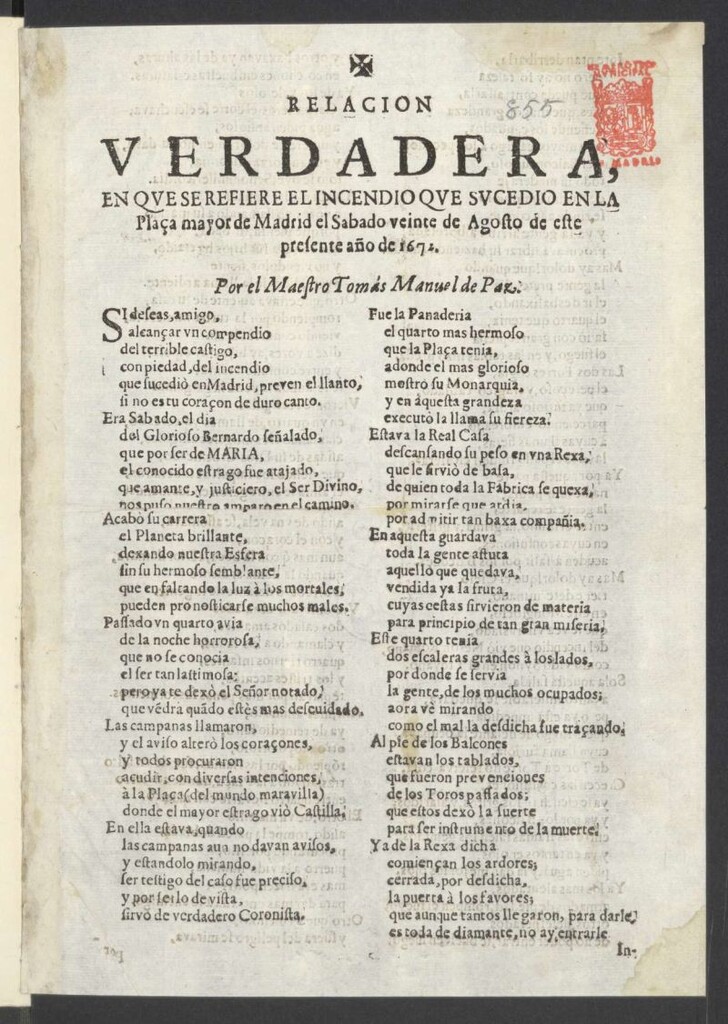 RELACION
855
VERDADERA,
EN QVE SE REFIERE EL INCENDIO QVE SVCEDIO EN LA
Plaça mayor de Madrid el Sabado veinte de Agosto de este
presente año de 1672.
Por el Maestro Tomás Manuel de Paz.
SI deseas, amigo,
alcançar vn compendio
del terrible castigo,
con piedad, del incendio
que sucediò en Madrid, preven el llanto,
si no es tu coraçon de duro canto.
Era Sabado, el dia
del Glorioso Bernardo señalado,
que por ser de MARIA,
el conocido estrago fue atajado,
que amante, y justiciero, el Ser Divino,
nos puso nuestro amparo en el camino.
Acabò su carrera
el Planeta brillante,
dexando nuestra Esfera
sin su hermoso semblante,
que en faltando la luz à los mortales,
pueden pronosticarse muchos males.
Passado vn quarto avia
de la noche horrorosa,
que no se conocia
el ser tan lastimosa;
pero ya te dexò el Señor notado,
que vēdrà quãdo estès mas descuidado.
Las campanas llamaron,
y el aviso alterò los coraçones,
y todos procuraron
acudir, con diversas intenciones,
à la Plaça (del mundo maravilla)
donde el mayor estrago viò Castilla.
En ella estava, quando
las campanas aun no davan avisos,
y estandolo mirando,
ser testigo del caso fue preciso,
y por serlo de vista,
sirvò de verdadero Coronista.
Fue la Panaderia
el quarto mas hermoso
que la Plaça tenia,
adonde el mas glorioso
mostrò su Monarquia,
y en aquesta grandeza
executò la llama su fiereza.
Estava la Real Casa
descansando su peso en vna Rexa,
que le sirviò de basa,
de quien toda la Fabrica se quexa,
por mirarse que ardia,
por admitir tan baxa compañia.
En aquesta guardava
toda la gente astuta
aquello que quedava,
vendida ya la fruta,
cuyas cestas sirvieron de materia
para principio de tan gran miseria.
Este quarto tenia
dos escaleras grandes à los lados,
por donde se servia
la gente, de los muchos ocupados;
aora vè mirando
como el mal la desdicha fue traçando.
Al pie de los Balcones
estavan los tablados,
que fueron prevenciones
de los Toros passados;
que estos dexò la suerte
para ser instrumento de la muerte.
Ya de la Rexa dicha
comiençan los ardores;
cerrada, por desdicha,
la puerta à los favores;
que aunque tantos llegaron, para darle,
es toda de diamante, no ay entrarle
In-